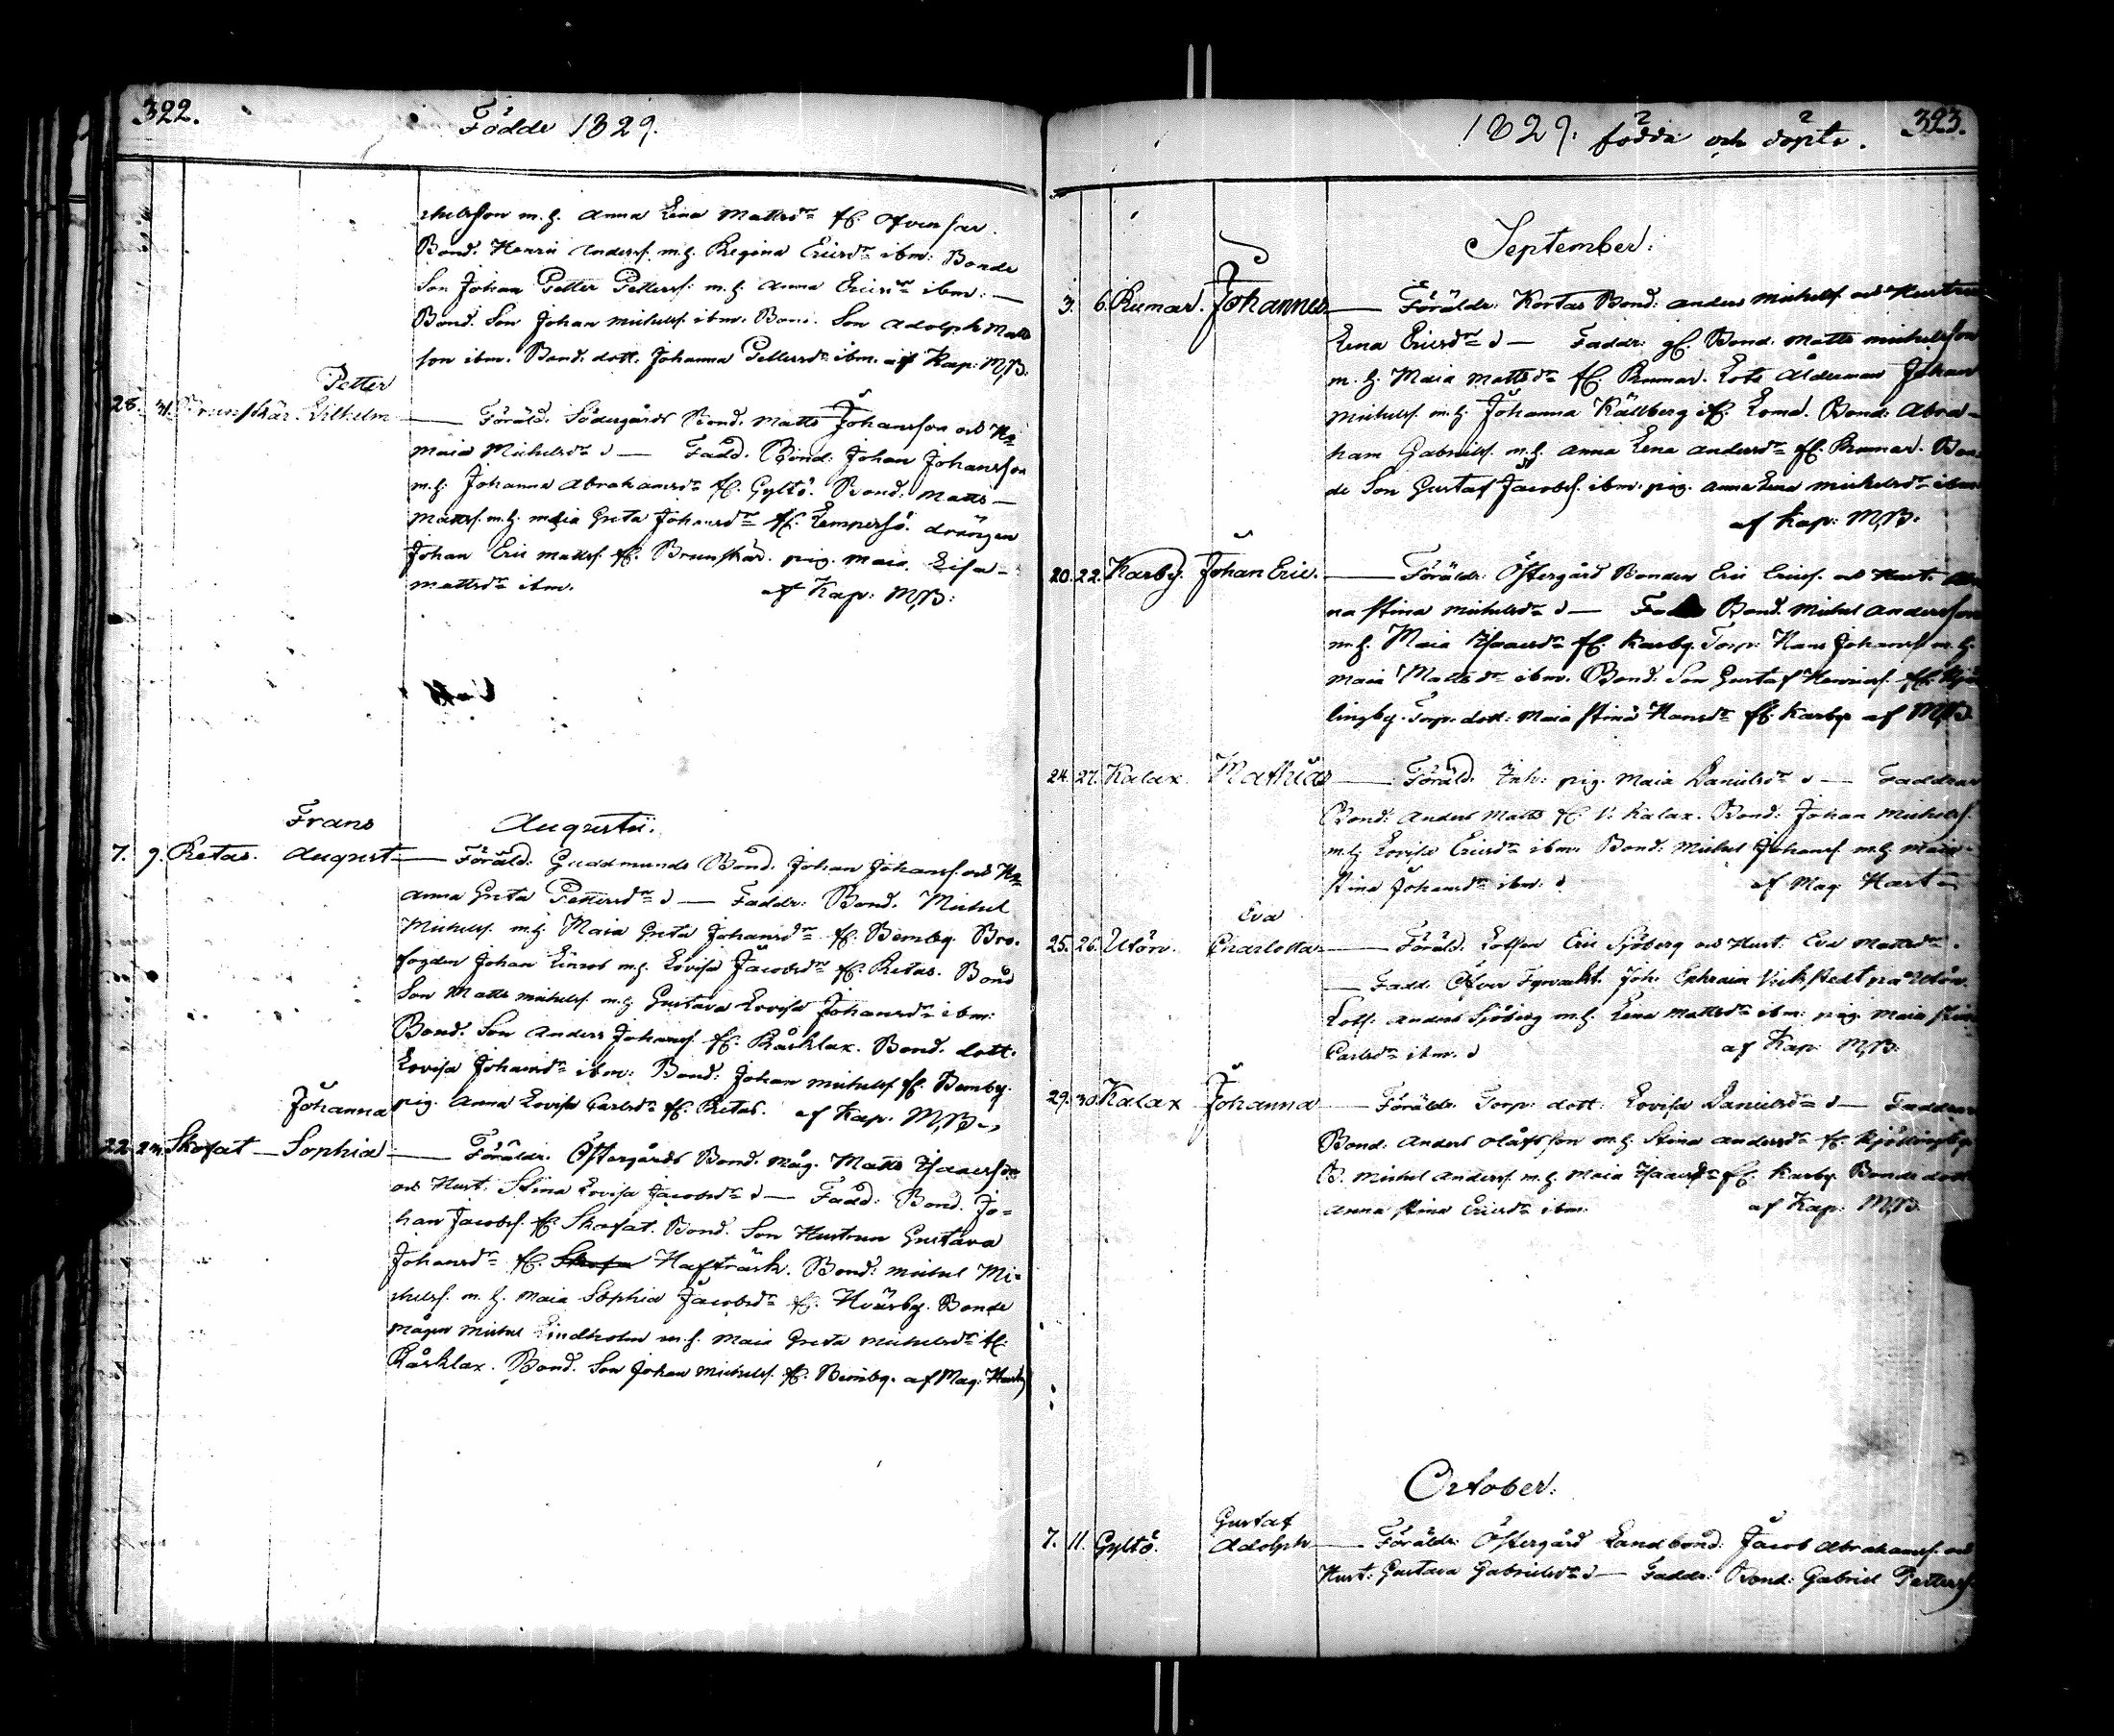 322.
Födde 1829.
chelsson m. h. Anna Lena Mattsdr fr. Ofvensor.
Bond. Henric Anderss. m.h. Regina Ericsdr ibm: Bonde
Son Johan Petter Petterss: m.h. Anna Ericsdr ibm: —
Bond. Son Johan Michelss. ibm. Bond. Son Adolph Matts
son ibm. Bond. dott. Johanna Pettersdr ibm. af Kap: M,B.
Petter
28. 31. Brunskär. Vilhelm — Föräld. Södergårds Bond. Matts Johansson och H
Maia Michelsdr d — Fadd. Bond: Johan Johansson
m.h. Johanna Abrahamsdr fr. Gyltö. Bond. Matts
Mattss. m.h. Maia Greta Johansdr fr. Lempersö. drängen
Johan Eric Mattss. fr. Brunskär. pig. Maia Lisa
Mattsdr ibm. af Kap: M,B:
Augusti.
Frans
7. 9. Retas. August — Föräld: Guddmunds Bond. Johan Johanss. och H
Anna Greta Pettersdr d — Faddr: Bond. Michel
Michelss. m.h. Maia Greta Johansdr fr. Bemby. Bro.
fogden Johan Linros m.h. Lovisa Jacobsdr fr. Retas. Bond
Son Matts Michelss. m.h. Gustava Lovisa Johansdr ibm:
Bond. Son Anders Johanss. fr. Kårklax. Bond. dott.
Lovisa Johansdr ibm: Bond: Johan Michelss. fr. Bemby.
pig. Anna Lovisa Carlsdr fr. Retas. af Kap. M,B
Johanna
22. 23. Skafat — Sophia — Föräldr: Östergårds Bond. måg. Matts Isaacsson
och Hust. Stina Lovisa Jacobsdr d — Fadd: Bond. Jo=
han Jacobss. fr. Skafat. Bond. Son Hustrun Gustava
Johansdr fr. Skafa Hafträsk. Bond: Michel Mi=
chelss. m.h. Maia Sophia Jacobsdr fr. Hvarsby. Bonde
mågen Michel Lindholm m.h. Maia Greta Michelsdr fr.
Kårklax. Bond. Son Johan Michelss. fr. Bemby. af Mag: Hart
1829. födda och döpte. 323.
September:
3. 6. Rumar. Johannes — Föräldr: Kortas Bond: Anders Michelss. och Hustrun
Lena Ericsdr d — Faddr: gl. Bond. Matts Michelsson
m.h. Maia Mattsdr fr. Rumar. Lots Ålderman Johan
Michelss. m.h. Johanna Källberg fr. Lomd. Bond: Abra=
ham Gabrielss. m.h. Anna Lena Andersdr fr. Rumar. Bon=
de Son Gustaf Jacobss. ibm: pig. Anna Lena Michelsdr ibm:
af Kap: M,B:
20. 22. Karby. Johan Eric. — Föräldr: Östergård Bonden Eric Ericss. och Hust. An
na Stina Michelsdr d — Fadd Bond. Michel Andersson
m.h. Maia Isaacsdr fr. Karby. Torp: Hans Johanss. m.h.
Maia Mattsdr ibm. Bond: Son Gustaf Henricss. fr. Kjöl
lingby. Torp. dott: Maia Stina Hansdr fr. Karby af M,B
24. 27. Kalax Mathias — Föräld. Inh: pig. Maia Danielsdr d — Faddrar
Bond: Anders Matts fr. V. Kalax. Bond: Johan Michelss.
m.h. Lovisa Ericsdr ibm. Bond: Michel Johanss. m.h. Maia
Stina Johansdr ibm: d af Mag. Hart
Eva
25. 26. Utön. Charlotta — Föräld. Lotsen Eric Sjöberg och Hust: Eva Mattsdr.
— Fadd. Öfver Fyrvakt. Joh. Ephraim Vickstedt på Utön.
Lots: Anders Sjöberg m.h. Lena Mattsdr ibm: pig. Maia Stina
Carlsdr ibm. d af Kap: M,B:
29. 30. Kalax Johanna — Föräldr. Torp: dott: Lovisa Danielsdr d — Faddrar
Bond: Anders Olofsson m.h. Stina Andersdr fr. Kjöllingby
B. Michel Anderss. m.h. Maia Isaacsdr fr. Karby. Bonde dott
Anna Stina Ericsdr ibm: af Kap: M,B.
October:
Gustaf
7. 11. Gyltö. Adolph — Föräldr: Östergård Landbond: Jacob Abrahamss. och
Hust: Gustava Gabrielsdr d — Faddr: Bond: Gabriel Petterss.